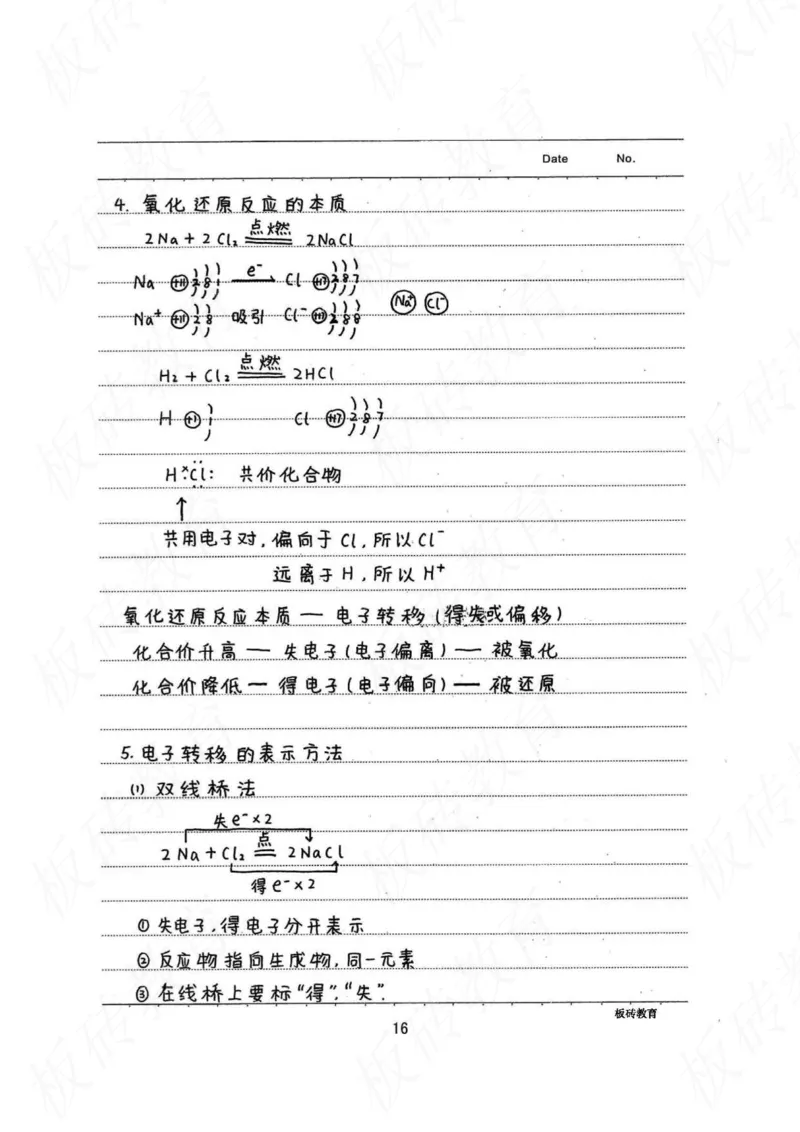 Date No.
4. 氧化还原反应的本质
2Na + 2Cl₂ 点燃 2NaCl
Na +11 2 8 1 e⁻ Cl +17 2 8 7
Na⁺ +11 2 8 吸引 Cl⁻ +17 2 8 8 Na⁺ Cl⁻
H₂ + Cl₂ 点燃 2HCl
H +1 1 Cl +17 2 8 7
H Cl: 共价化合物
↑
共用电子对,偏向于Cl,所以Cl⁻
远离于H,所以H⁺
氧化还原反应本质 — 电子转移(得失或偏移)
化合价升高 — 失电子(电子偏离) — 被氧化
化合价降低 — 得电子(电子偏向) — 被还原
5. 电子转移的表示方法
(1) 双线桥法
失e⁻×2
2Na + Cl₂ 点 2NaCl
得e⁻×2
① 失电子,得电子分开表示
② 反应物指向生成物,同一元素
③ 在线桥上要标“得”,“失”.
板砖教育
16